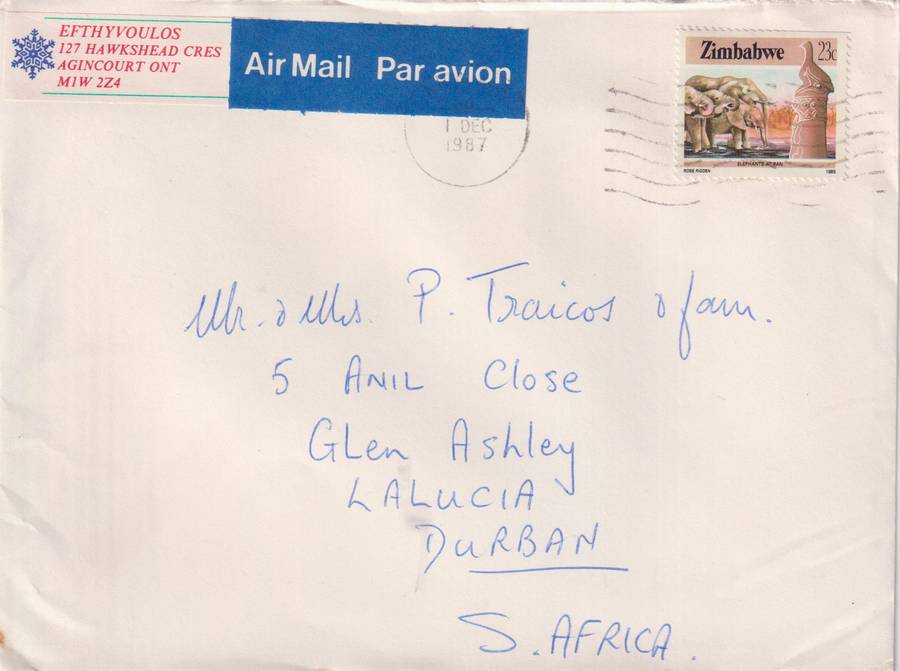 EFTHYVOULOS
127 HAWKSHEAD CRES
AGINCOURT ONT
M1W 2Z4
Air Mail Par avion
1 DEC
1987
Zimbabwe 23c
ELEPHANTS AT PAN
ROSE RIGDEN 1985
Mr. & Mrs. P. Traicos & fam.
5 ANIL Close
Glen Ashley
LALUCIA
DURBAN
S. AFRICA.